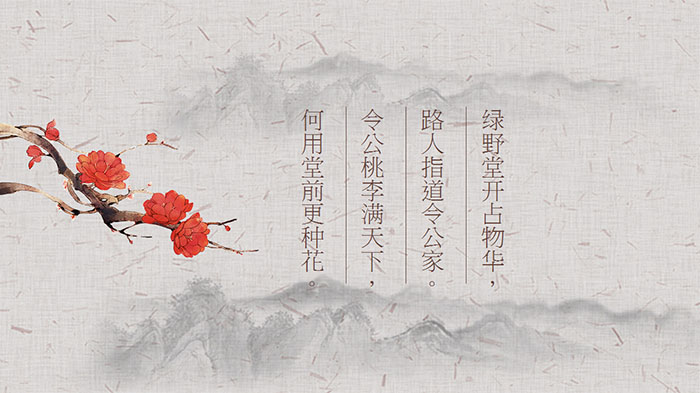 绿野堂开占物华，
路人指道令公家。
令公桃李满天下，
何用堂前更种花。